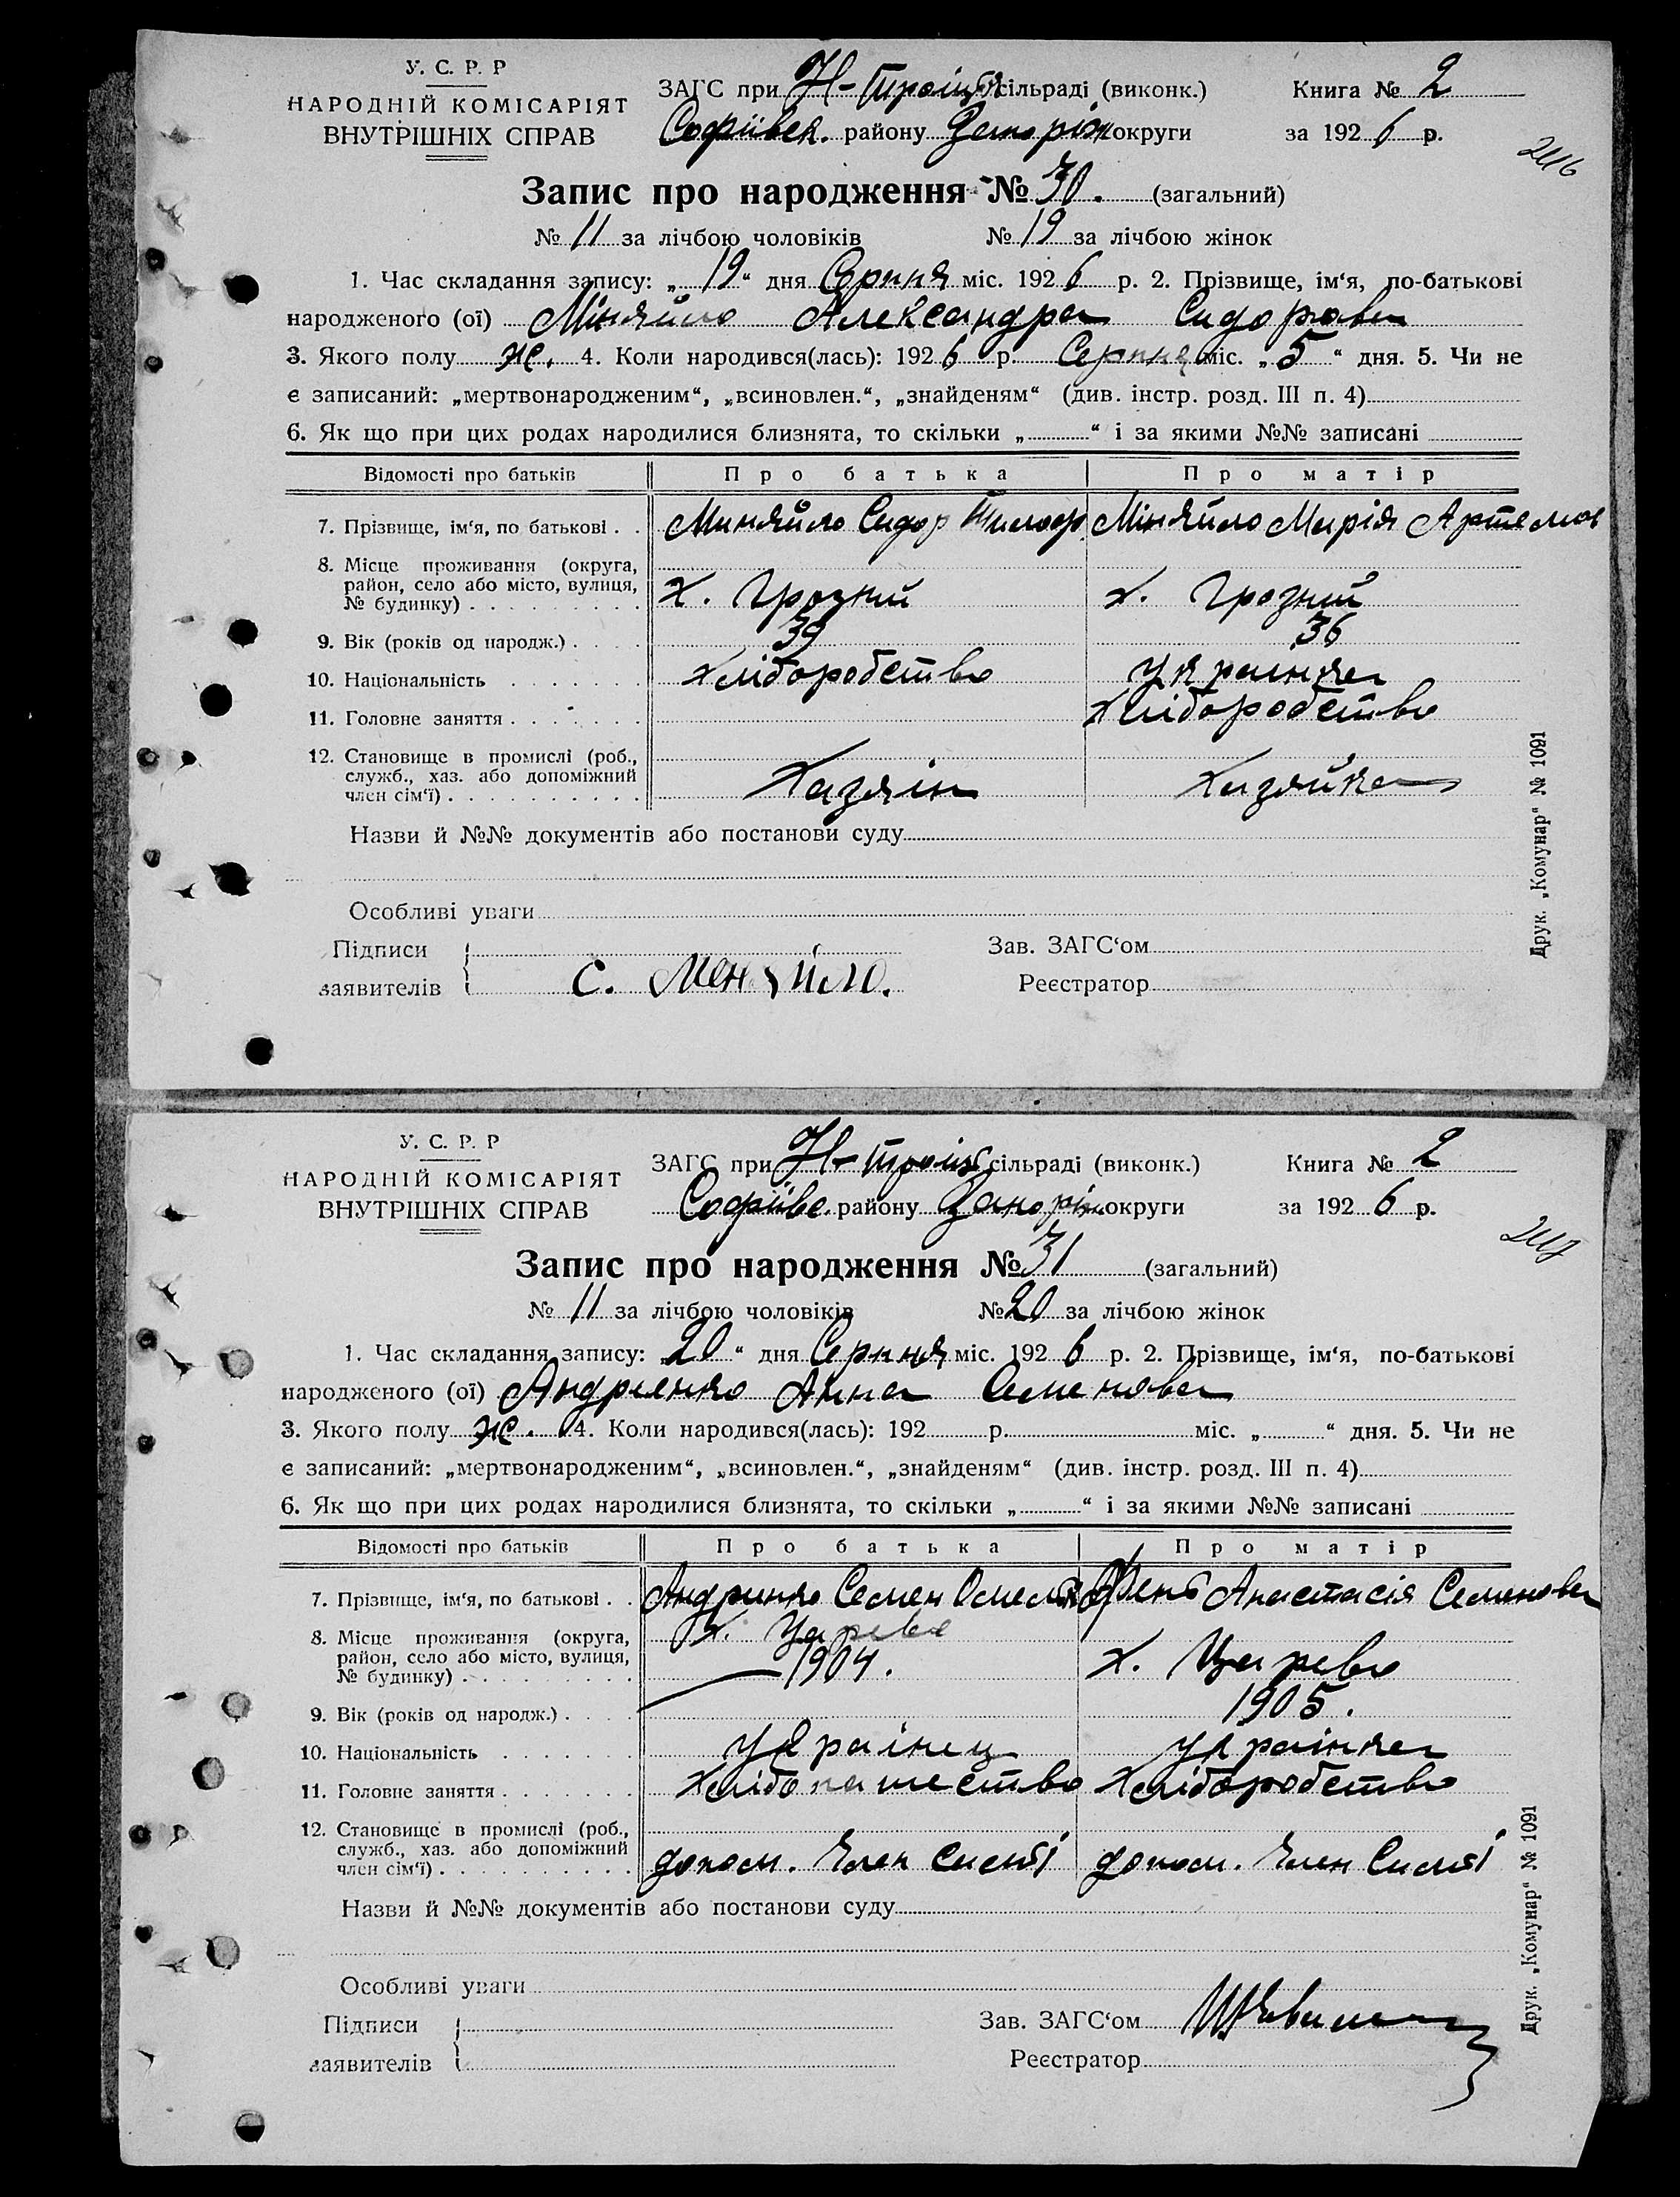 У. С. Р. Р
НАРОДНІЙ КОМІСАРІЯТ
ВНУТРІШНІХ СПРАВ
ЗАГС при Н-Троіцк сільраді (виконк.) Книга № 2
Софіівск. району Запоріж округи за 192 6 р.
246
Запис про народження № 30. (загальний)
№ 11 за лічбою чоловіків № 19 за лічбою жінок
1. Час складання запису: „ 19 “ дня Серпня міс. 192 6 р. 2. Прізвище, ім‘я, по-батькові
народженого (ої) Міняйло Александра Сидорова
3. Якого полу ж. 4. Коли народився(лась): 192 6 р. Серпня міс. „ 5 “ дня. 5. Чи не
є записаний: „мертвонародженим“, „всиновлен.“, „знайденям“ (див. інстр. розд. III п. 4)
6. Як що при цих родах народилися близнята, то скільки „ “ і за якими №№ записані
Відомості про батьків Про батька Про матір
7. Прізвище, ім‘я, по батькові . . Миняйло Сидор Міняйло Марія Артемов
8. Місце проживання (округа,
район, село або місто, вулиця,
№ будинку) . х. Грозний х. Грозний
9. Вік (років од народж.) . 39 36
10. Національність хліборобство украінка
11. Головне заняття . хліборобство
12. Становище в промислі (роб.,
служб., хаз. або допоміжний
член сім‘ї) . Хазяін Хазяйка
Назви й №№ документів або постанови суду
Особливі уваги
Підписи Зав. ЗАГС‘ом
заявителів С. Меняйло. Реєстратор
Друк. „Комунар“ № 1091
У. С. Р. Р
НАРОДНІЙ КОМІСАРІЯТ
ВНУТРІШНІХ СПРАВ
ЗАГС при Н-Троіцк сільраді (виконк.) Книга № 2
Софіівс. району Запоріж. округи за 192 6 р.
247
Запис про народження № 31 (загальний)
№ 11 за лічбою чоловіків № 20 за лічбою жінок
1. Час складання запису: 20 “ дня Серпня міс. 192 6 р. 2. Прізвище, ім‘я, по-батькові
народженого (ої) Андриенко Анна Семенова
3. Якого полу ж. 4. Коли народився(лась): 192 р. міс. „ “ дня. 5. Чи не
є записаний: „мертвонародженим“, „всиновлен.“, „знайденям“ (див. інстр. розд. III п. 4)
6. Як що при цих родах народилися близнята, то скільки „ “ і за якими №№ записані
Відомості про батьків Про батька Про матір
7. Прізвище, ім‘я, по батькові . . Семен Омеля Анастасія Семенова
8. Місце проживання (округа,
район, село або місто, вулиця,
№ будинку) . х. Царево 1904. х. Царево
9. Вік (років од народж.) . 1905.
10. Національність украінец украінка
11. Головне заняття . Хлібопашество Хліборобство
12. Становище в промислі (роб.,
служб., хаз. або допоміжний
член сім‘ї) . допом. Член Сиємі допом. Член Сиємі
Назви й №№ документів або постанови суду
Особливі уваги
Підписи Зав. ЗАГС‘ом
заявителів Реєстратор
Друк. „Комунар“ № 1091